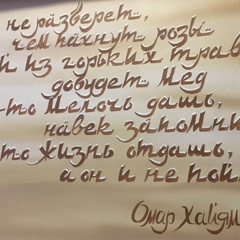 не разберет,
чем пахнут розы
из горьких трав
добудет мед
-то мелочь дашь,
навек запомни
то жизнь отдашь,
а он и не пой
Омар Хайям